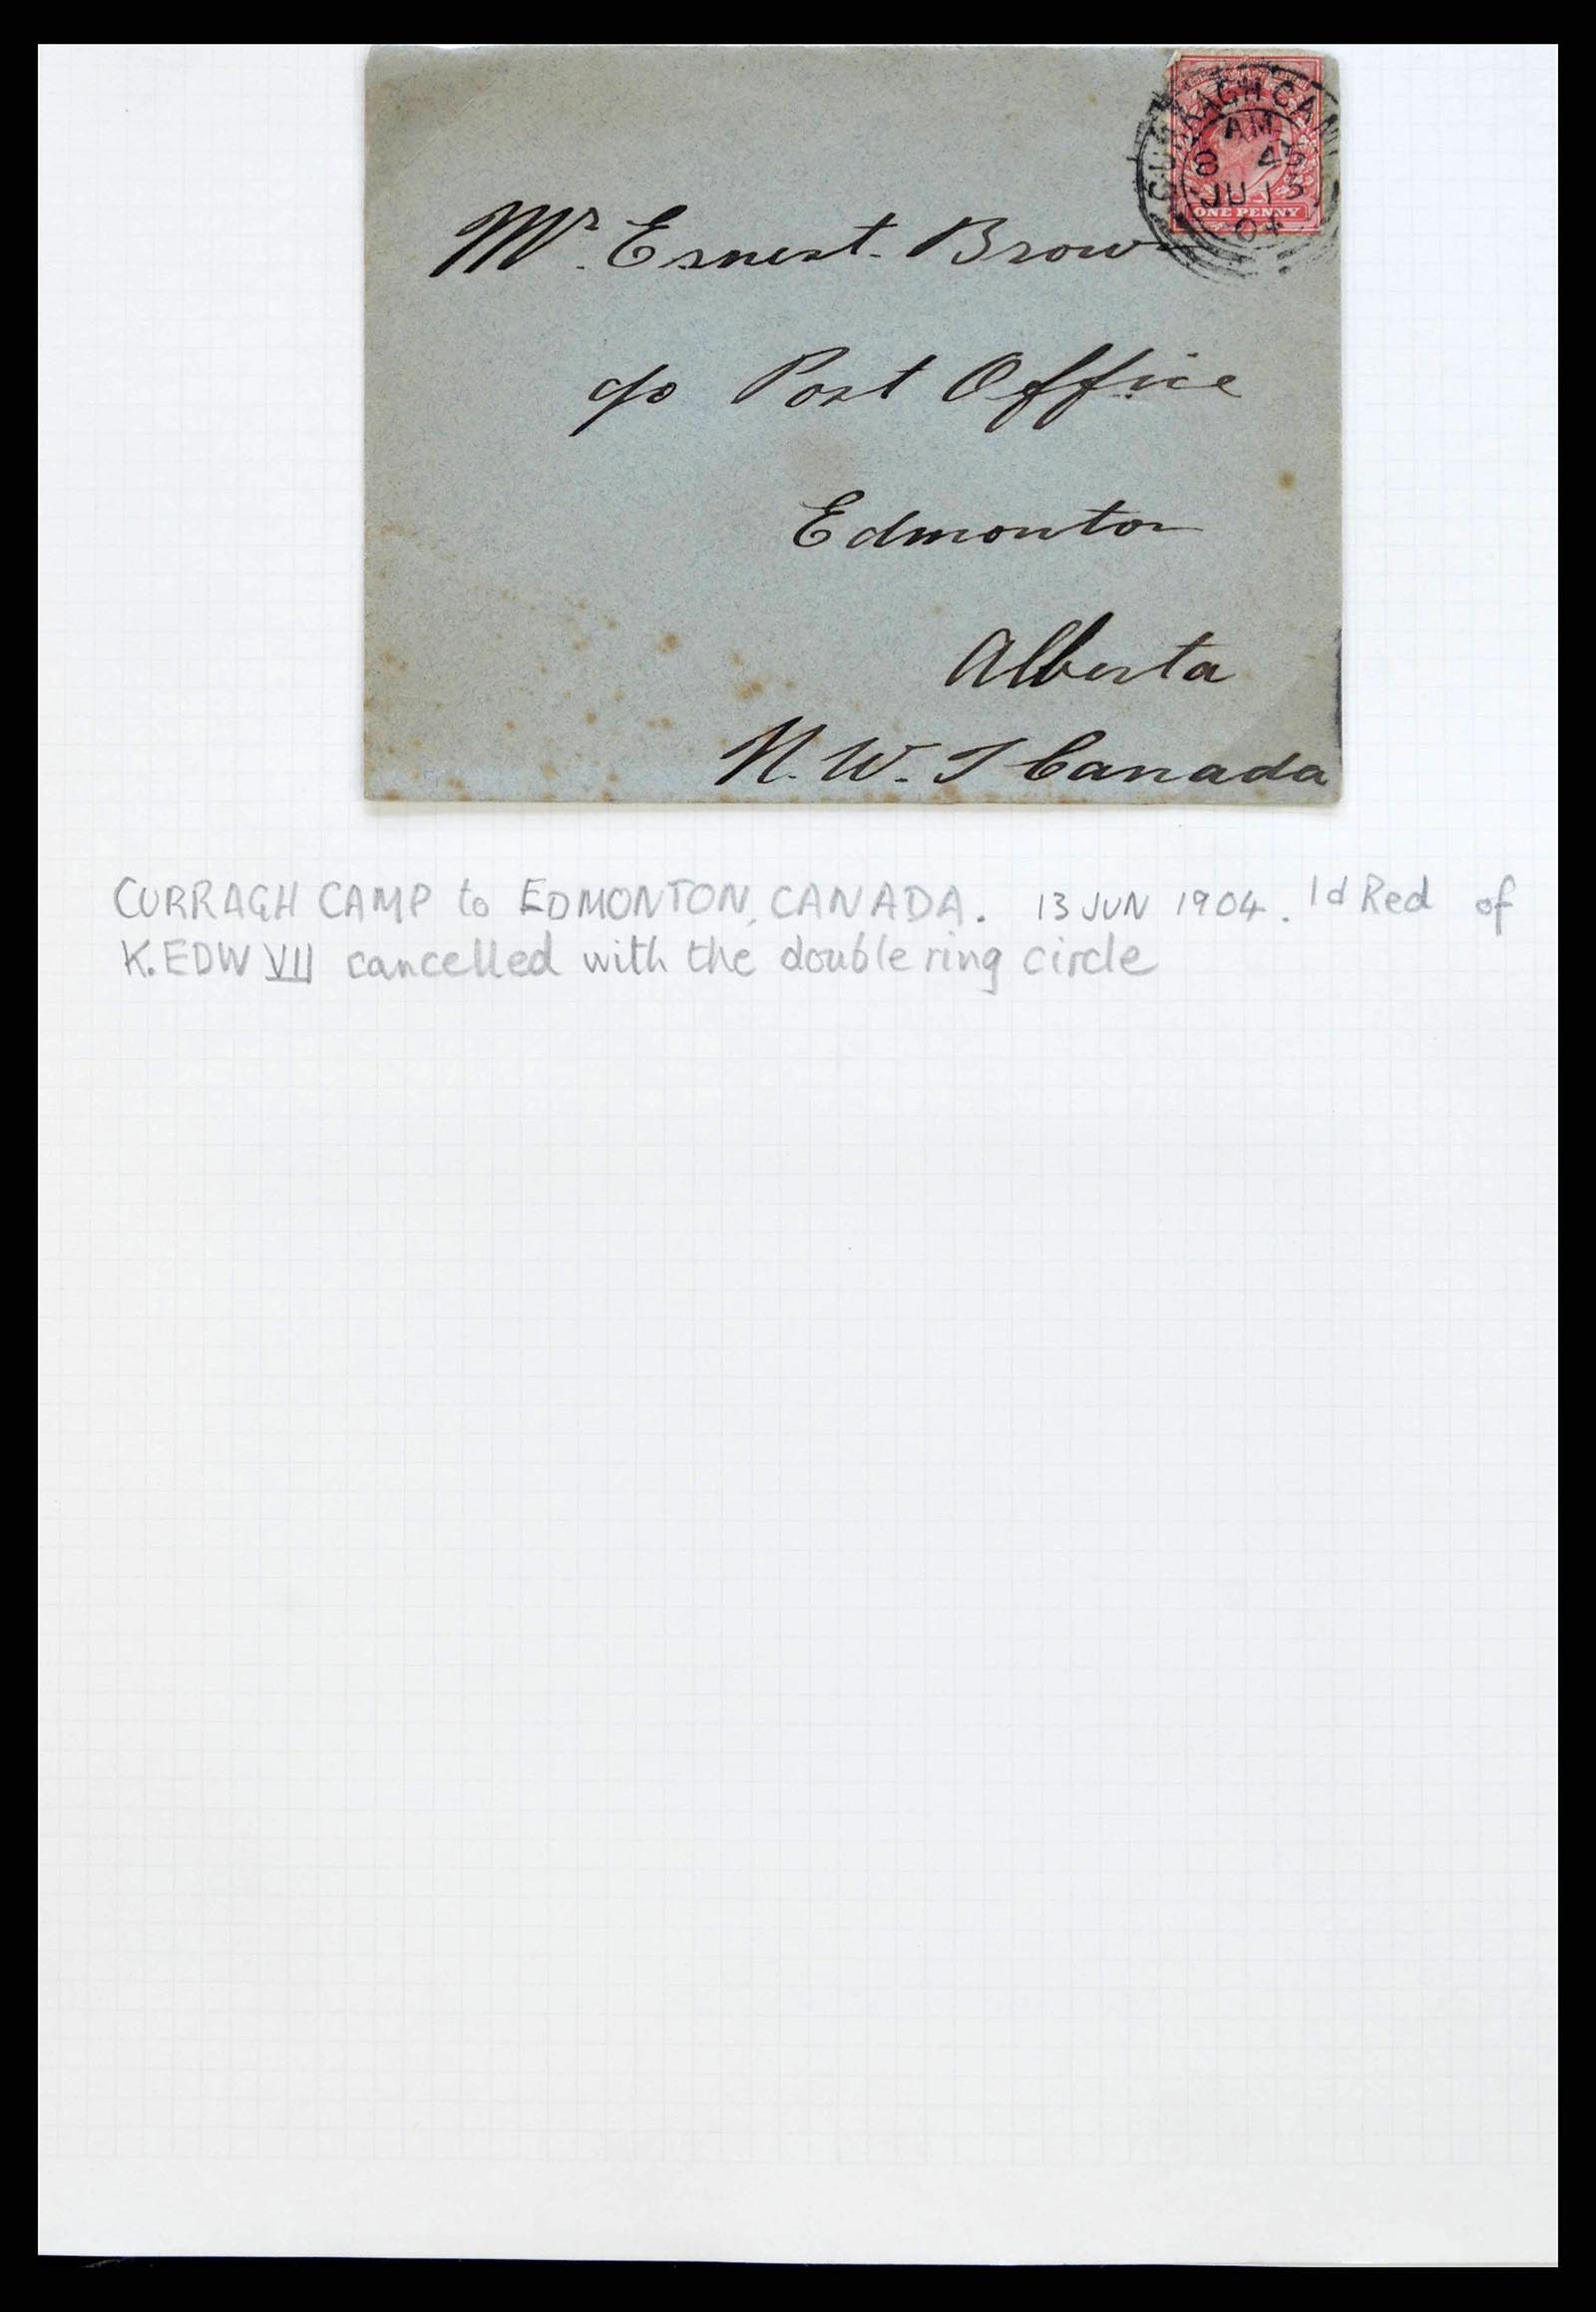 CURRAGH CAMP
AM
8 45
JU 13
04
ONE PENNY
Mr. Ernest. Brown
c/o Post Office
Edmonton
Alberta
N. W. T Canada
CURRAGH CAMP to EDMONTON, CANADA. 13 JUN 1904. 1d Red of
K. EDW VII cancelled with the double ring circle